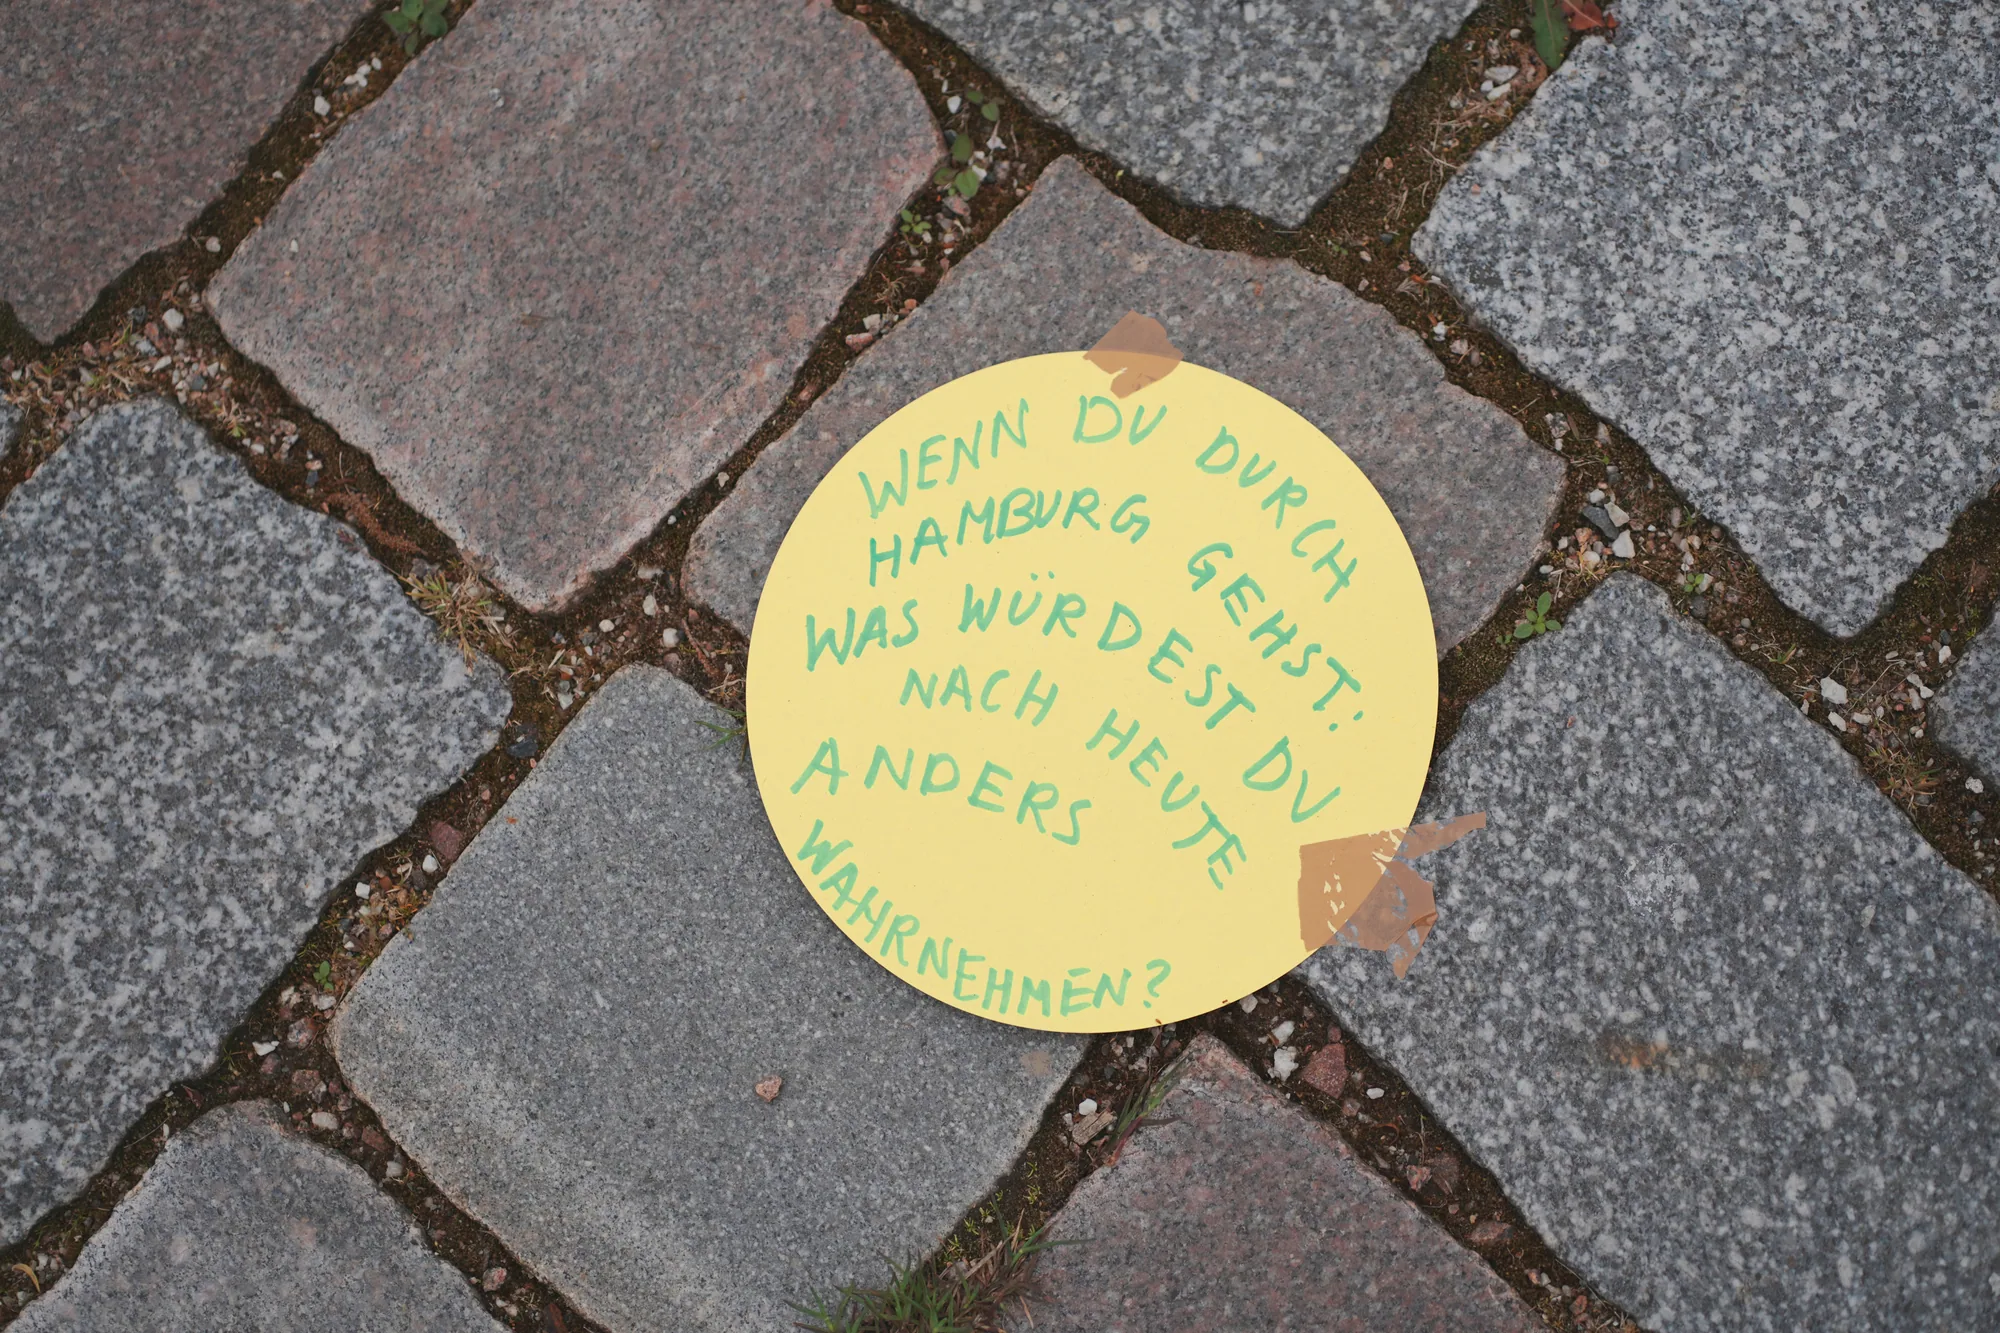 WENN DU DURCH
HAMBURG GEHST:
WAS WÜRDEST DU
NACH HEUTE
ANDERS
WAHRNEHMEN?